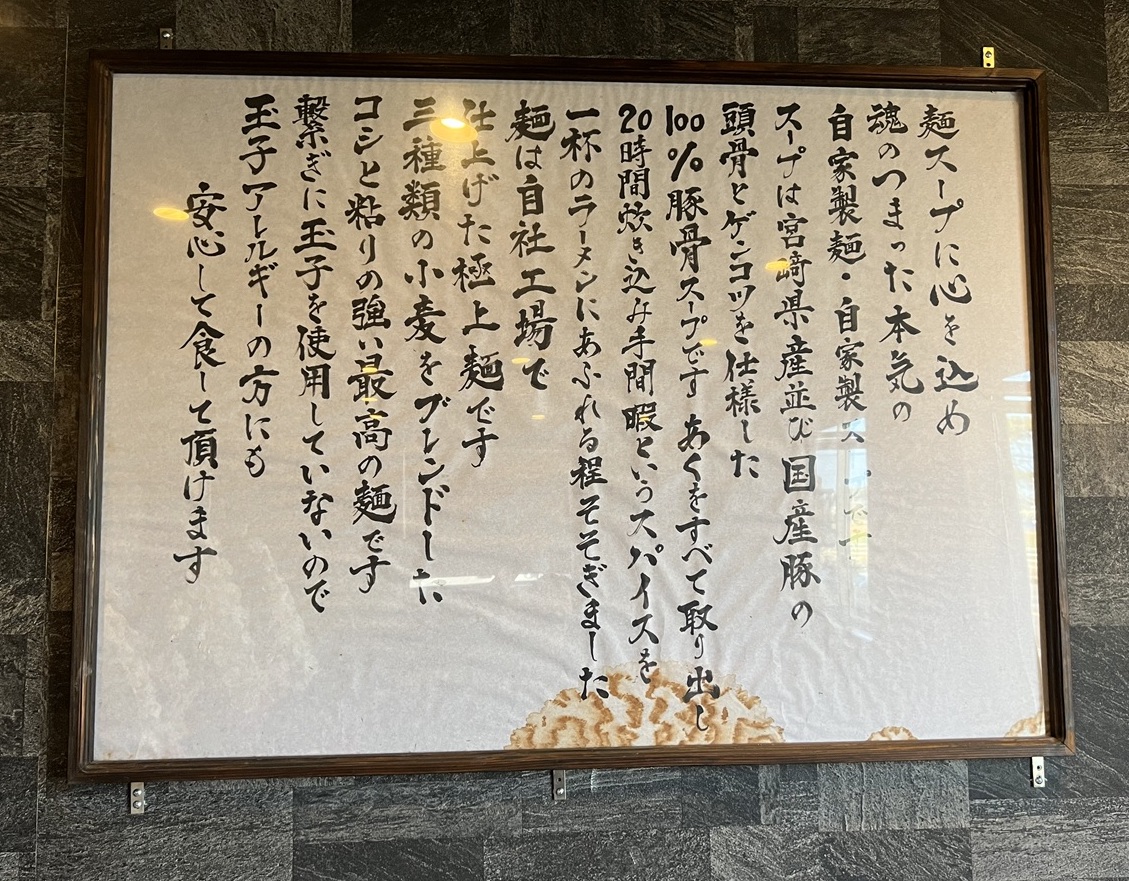 麺スープに心を込め
魂のつまった本気の
自家製麺・自家製スープです
スープは宮崎県産並び国産豚の
頭骨とゲンコツを仕様した
100%豚骨スープです あくをすべて取り出し
20時間炊き込み手間暇というスパイスを
一杯のラーメンにあふれる程そそぎました
麺は自社工場で
仕上げた極上麺です
三種類の小麦をブレンドした
コシと粘りの強い最高の麺です
繋ぎに玉子を使用していないので
玉子アレルギーの方にも
安心して食して頂けます